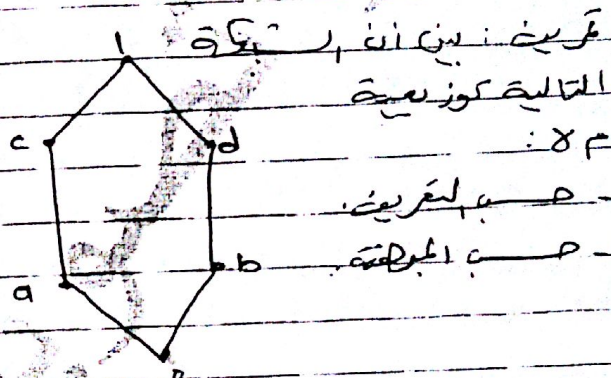 تمرين: بين أن الشبكة
التالية توزيعية
أم لا:
- حسب التعريف.
- حسب المبرهنة.
1
c
d
a
b